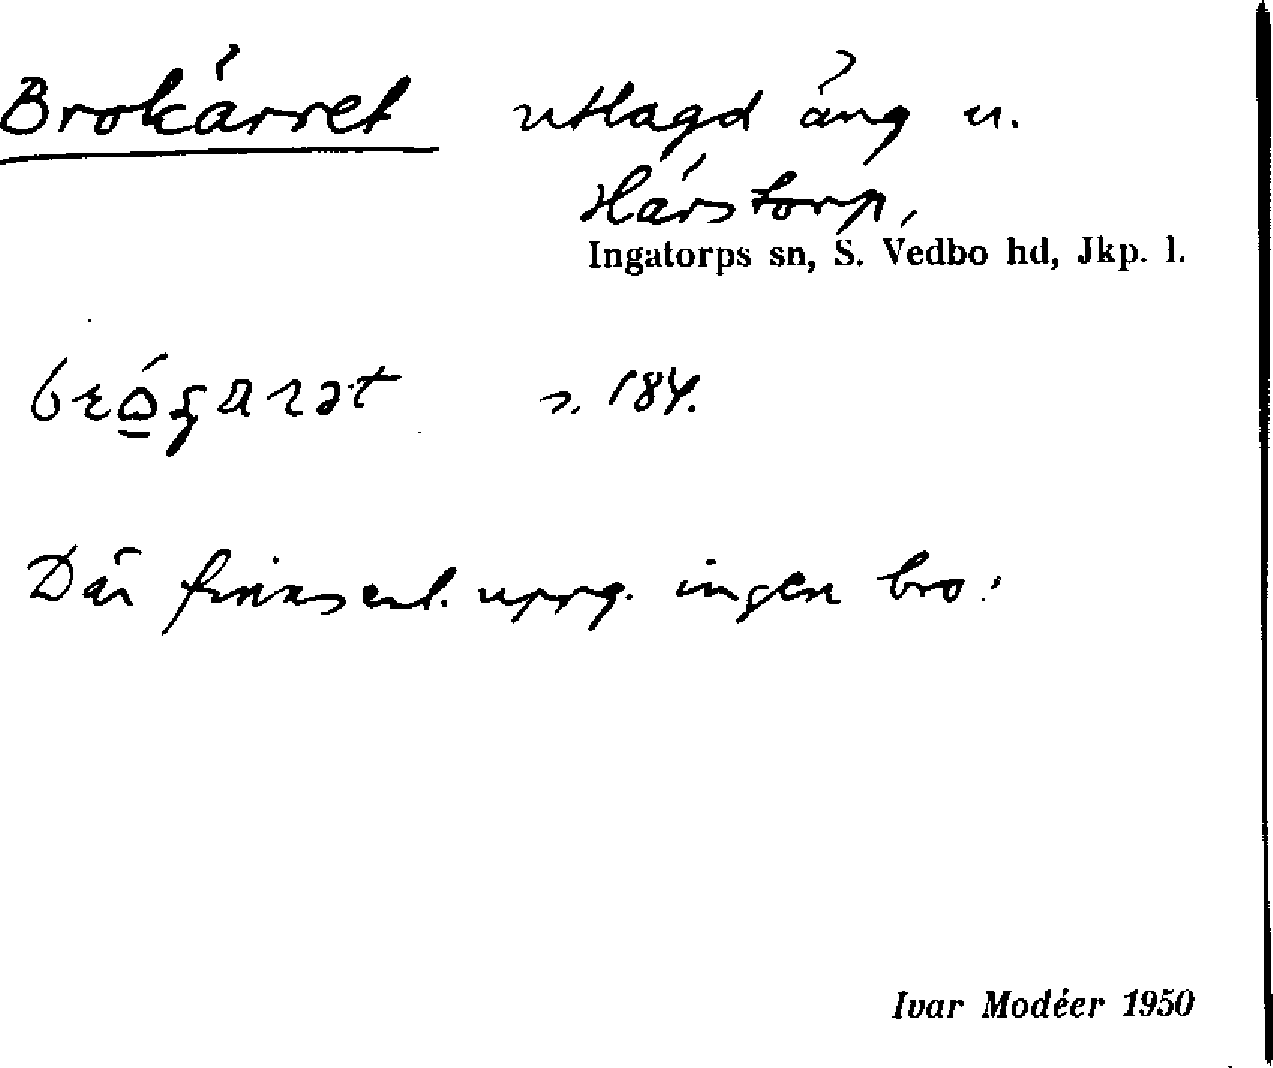 Brokärret utlagd äng u.
Härstorp,
Ingatorps sn, S. Vedbo hd, Jkp. l.
s. 184.
Där finns enl. uppg. ingen bro.
Ivar Modéer 1950